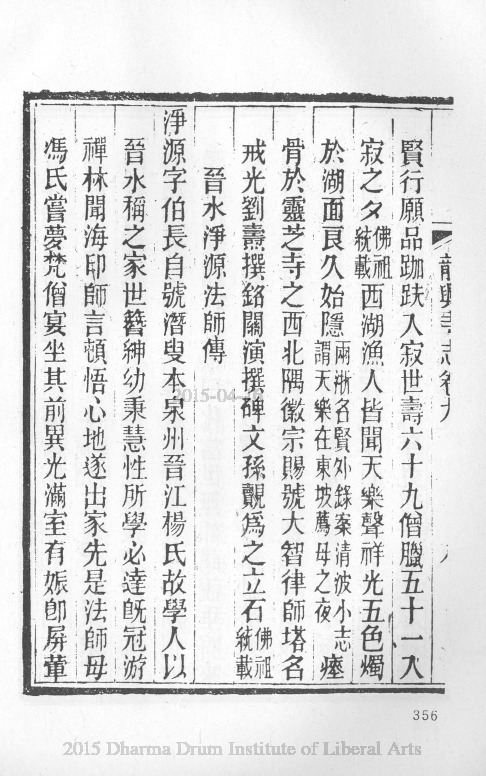 龍興寺志卷九
賢行願品跏趺入寂世壽六十九僧臘五十一入
寂之夕佛祖統載西湖漁人皆聞天樂聲祥光五色燭
於湖面良久始隱兩浙名賢外錄案清波小志謂天樂在東坡薦母之夜瘞
骨於靈芝寺之西北隅徽宗賜號大智律師塔名
戒光劉燾撰銘關演撰碑文孫覿爲之立石佛祖統載
晉水淨源法師傳
淨源字伯長自號潛叟本泉州晉江楊氏故學人以
晉水稱之家世簪紳幼秉慧性所學必達旣冠游
禪林聞海印師言頓悟心地遂出家先是法師母
馮氏嘗夢梵僧宴坐其前異光滿室有娠卽屏葷
2015-04-
356
2015 Dharma Drum Institute of Liberal Arts